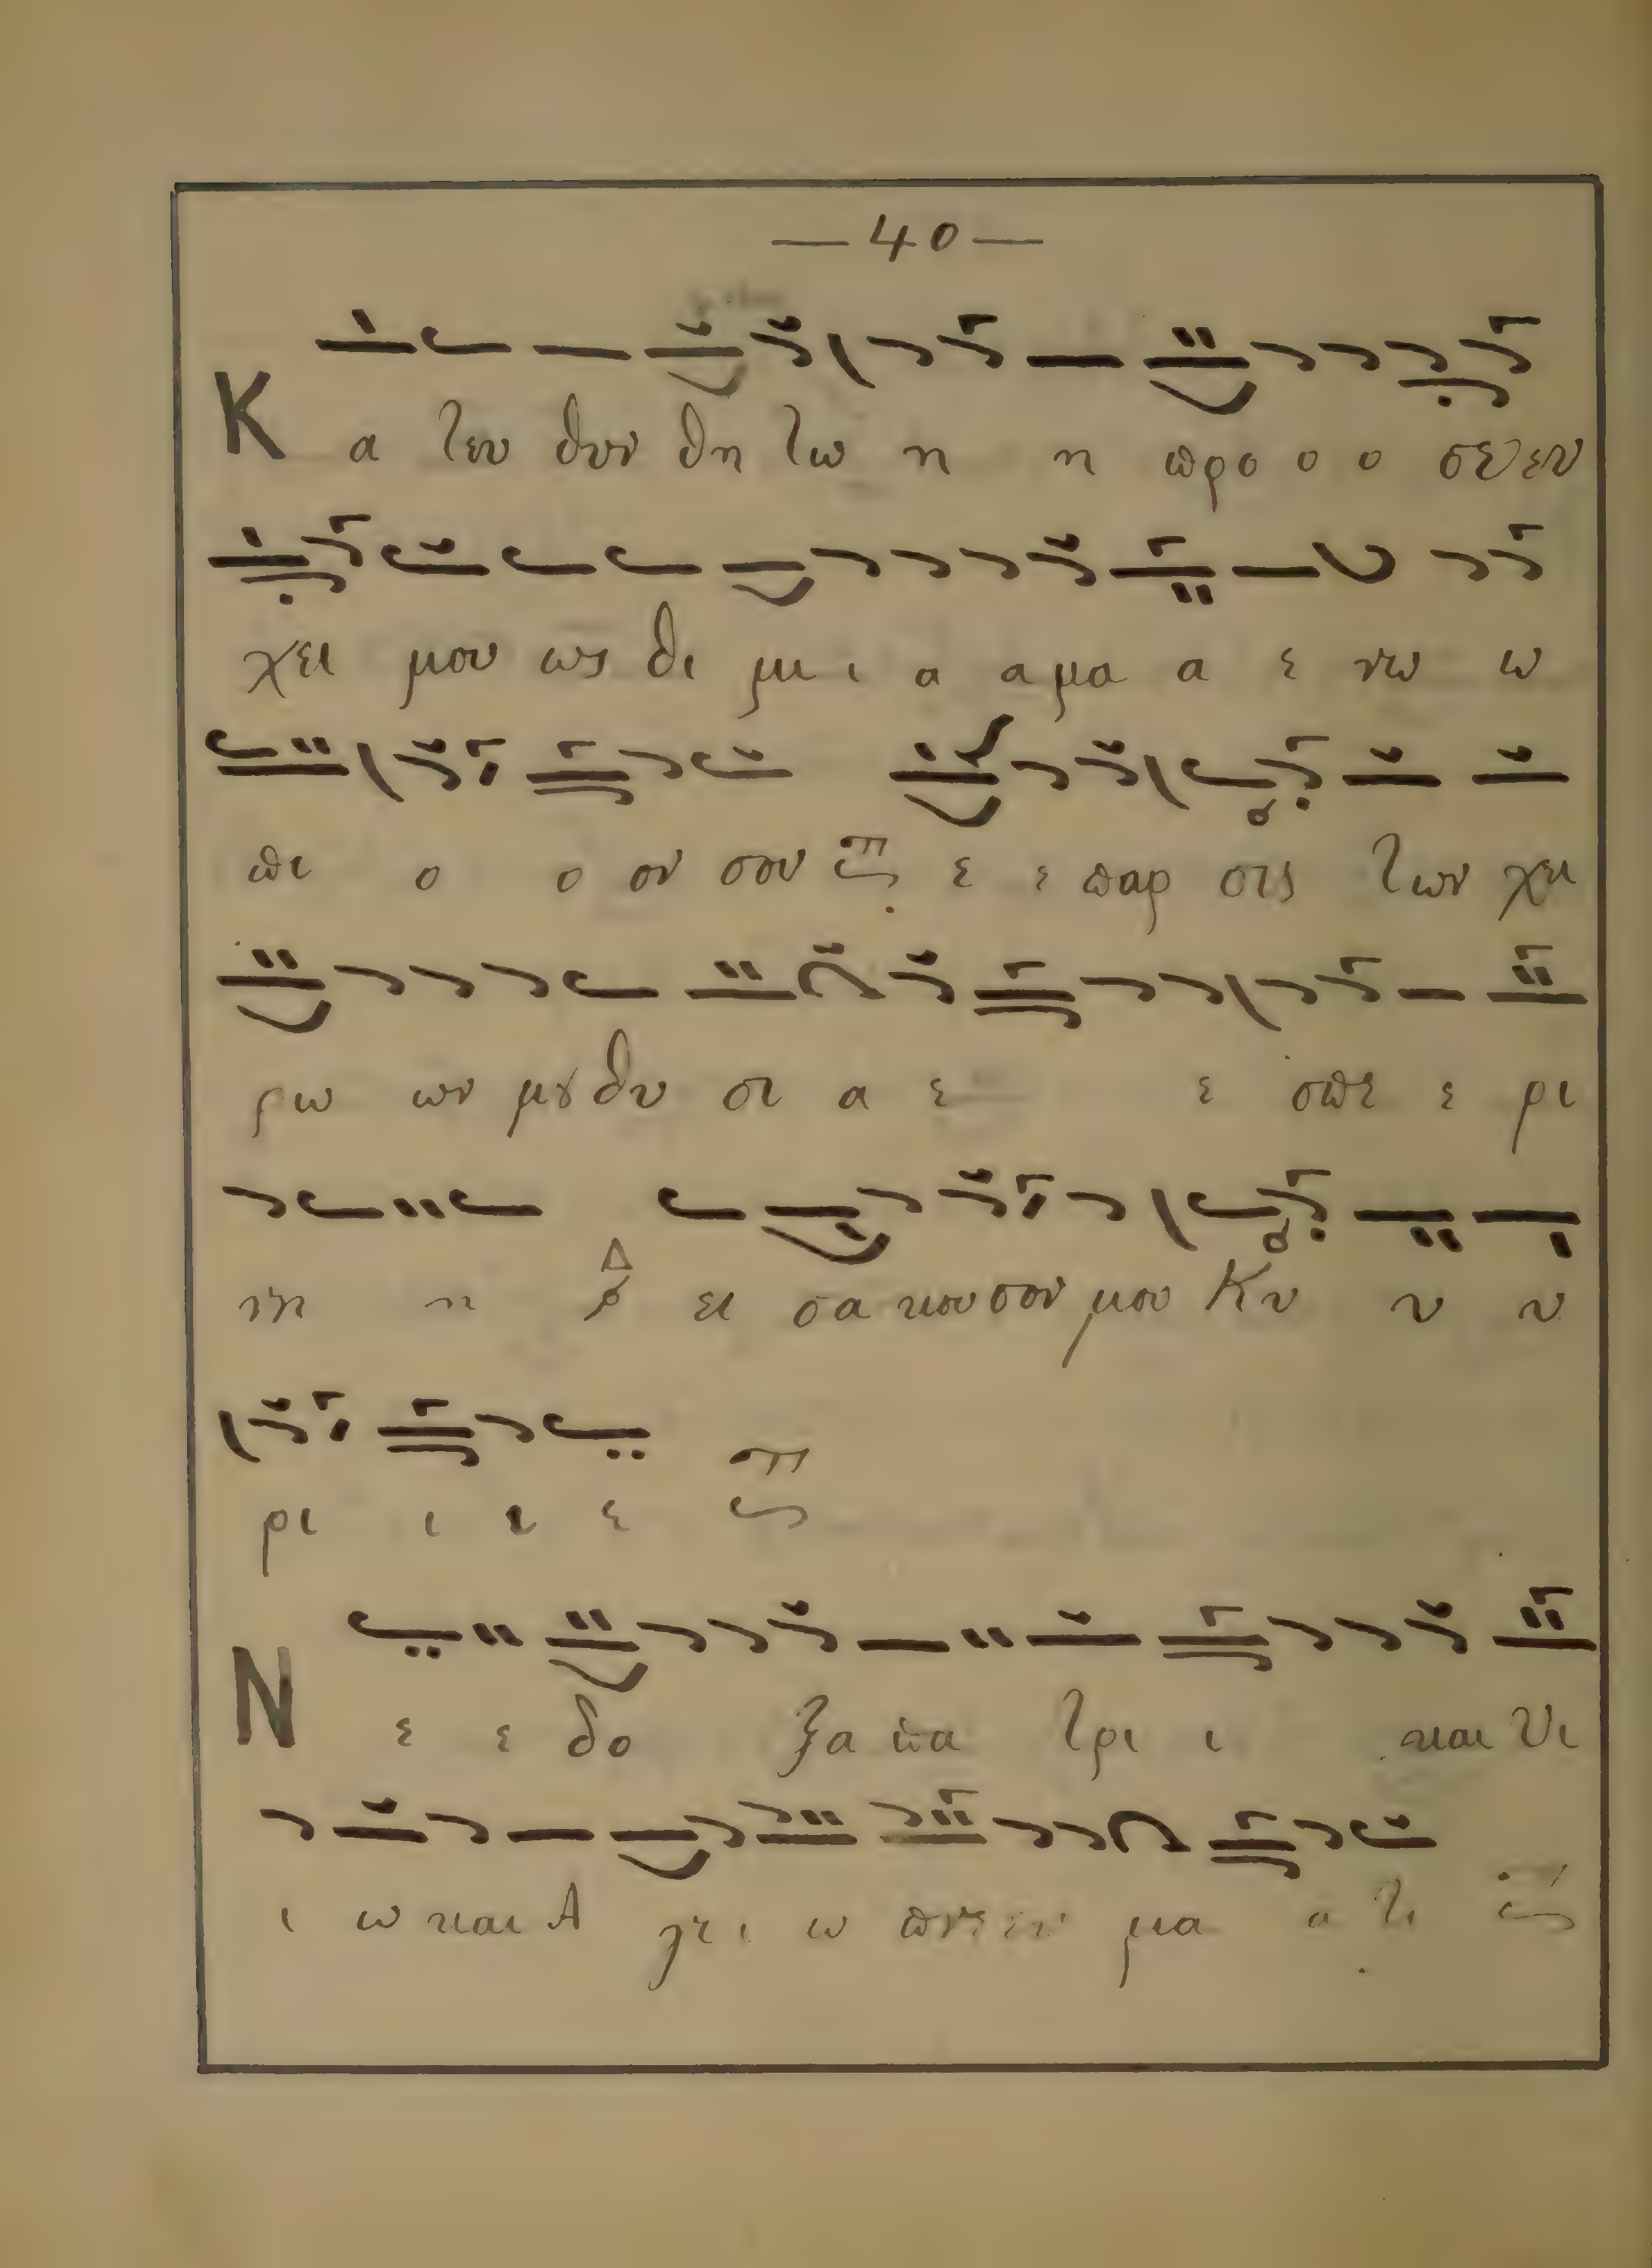 — 40 —
Κ α τευ θυν θη τω η η προ ο ο σευ ευ
χει μου ως θι μι ι α α μα α ε νω ω
πι ο ο ον σου ε ε παρ σις των χει
ρω ων μȣ θυ σι α ε ε σπε ε ρι
νη η Δ ει σα κου σον μου Κυ υ υ
ρι ι ι ε
Ν ε ε δο ξα πα τρι ι και Υι
ι ω και Α γι ι ω πνευ μα α τι